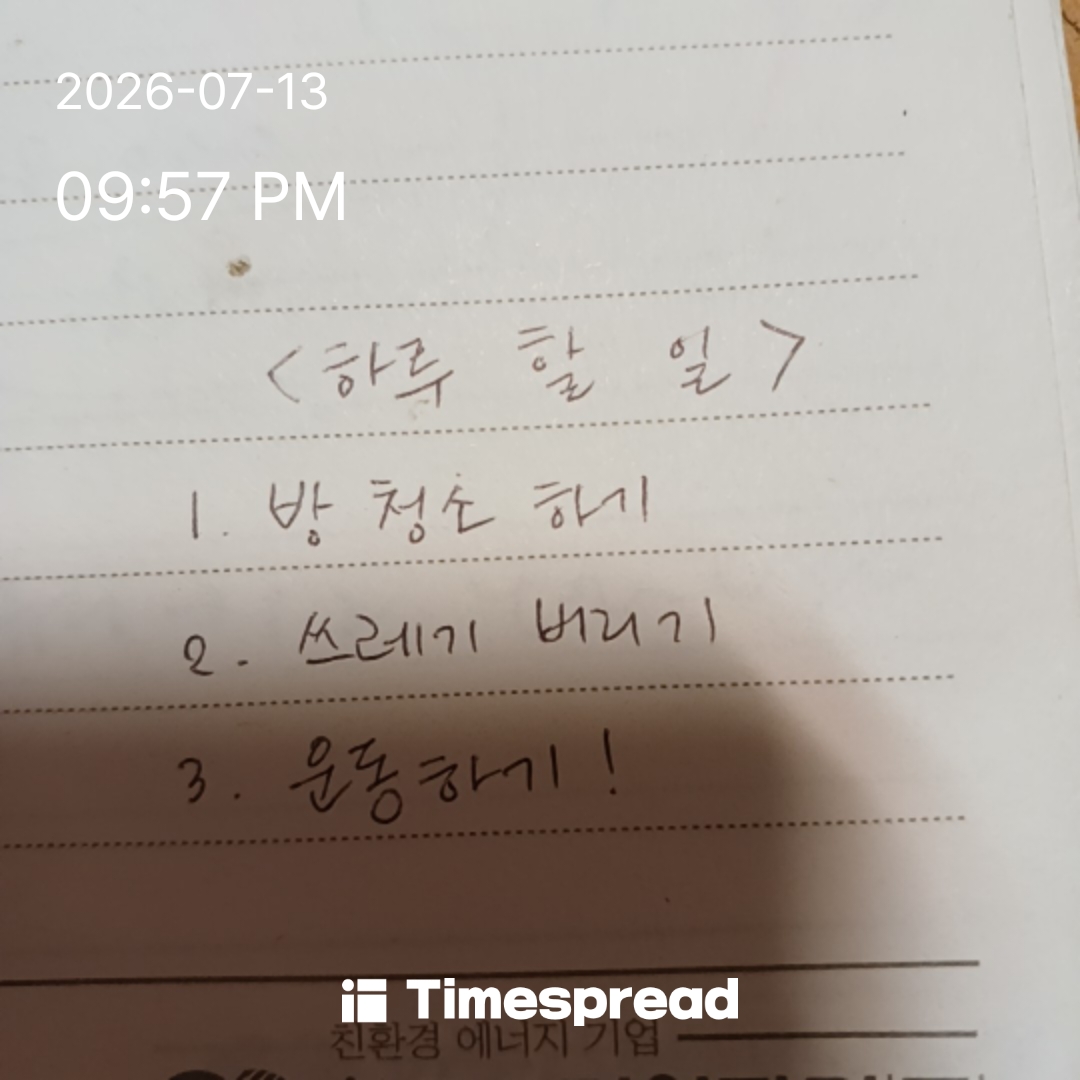 2026-07-13
09:57 PM
<하루 할 일>
1. 방 청소 하기
2. 쓰레기 버리기
3. 운동하기!
Timespread
친환경 에너지 기업